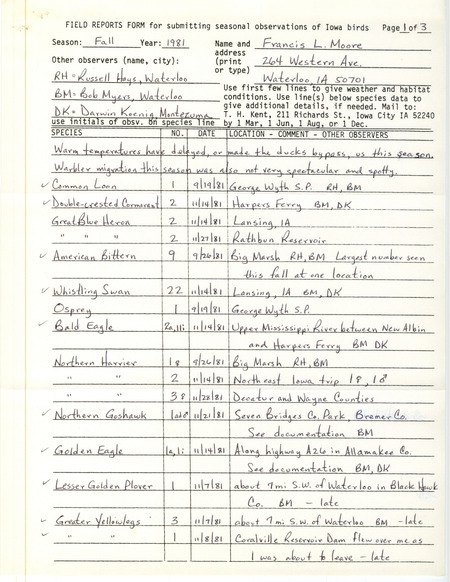 FIELD REPORTS FORM for submitting seasonal observations of Iowa birds Page 1 of 3
Season: Fall Year: 1981
Name and address (print or type)
Francis L. Moore
264 Western Ave.
Waterloo, IA 50701
Other observers (name, city):
RH = Russell Hays, Waterloo
BM = Bob Myers, Waterloo
DK = Darwin Koenig, Montezuma
use initials of obsv. on species line
Use first few lines to give weather and habitat
conditions. Use line(s) below species data to
give additional details, if needed. Mail to:
T. H. Kent, 211 Richards St., Iowa City IA 52240
by 1 Mar, 1 Jun, 1 Aug, or 1 Dec.
SPECIES NO. DATE LOCATION - COMMENT - OTHER OBSERVERS
Warm temperatures have delayed, or made the ducks bypass, us this season.
Warbler migration this season was also not very spectacular and spotty.
✓ Common Loon 1 9/19/81 George Wyth S.P. RH, BM
✓ Double-crested Cormorant 2 11/14/81 Harpers Ferry BM, DK
Great Blue Heron 2 11/14/81 Lansing, IA
" " " 2 11/27/81 Rathbun Reservoir
✓ American Bittern 9 9/26/81 Big Marsh RH, BM Largest number seen
this fall at one location
✓ Whistling Swan 22 11/14/81 Lansing, IA BM, DK
Osprey 1 9/19/81 George Wyth S.P.
✓ Bald Eagle 2a, 1i 11/14/81 Upper Mississippi River between New Albin
and Harpers Ferry BM DK
Northern Harrier 1♀ 9/26/81 Big Marsh RH, BM
" " 2 11/14/81 Northeast Iowa trip 1♀, 1♂
✓ " " 3♀ 11/28/81 Decatur and Wayne Counties
✓ Northern Goshawk 1ad♂ 11/21/81 Seven Bridges Co. Park Bremer Co.
See documentation BM
✓ Golden Eagle 1a, 1i 11/14/81 Along highway A26 in Allamakee Co.
See documentation BM, DK
✓ Lesser Golden Plover 1 11/7/81 about 7 mi S.W. of Waterloo in Black Hawk
Co. BM - late
✓ Greater Yellowlegs 3 11/7/81 about 7 mi S.W. of Waterloo BM - late
✓ " " 1 11/8/81 Coralville Reservoir Dam flew over me as
I was about to leave - late